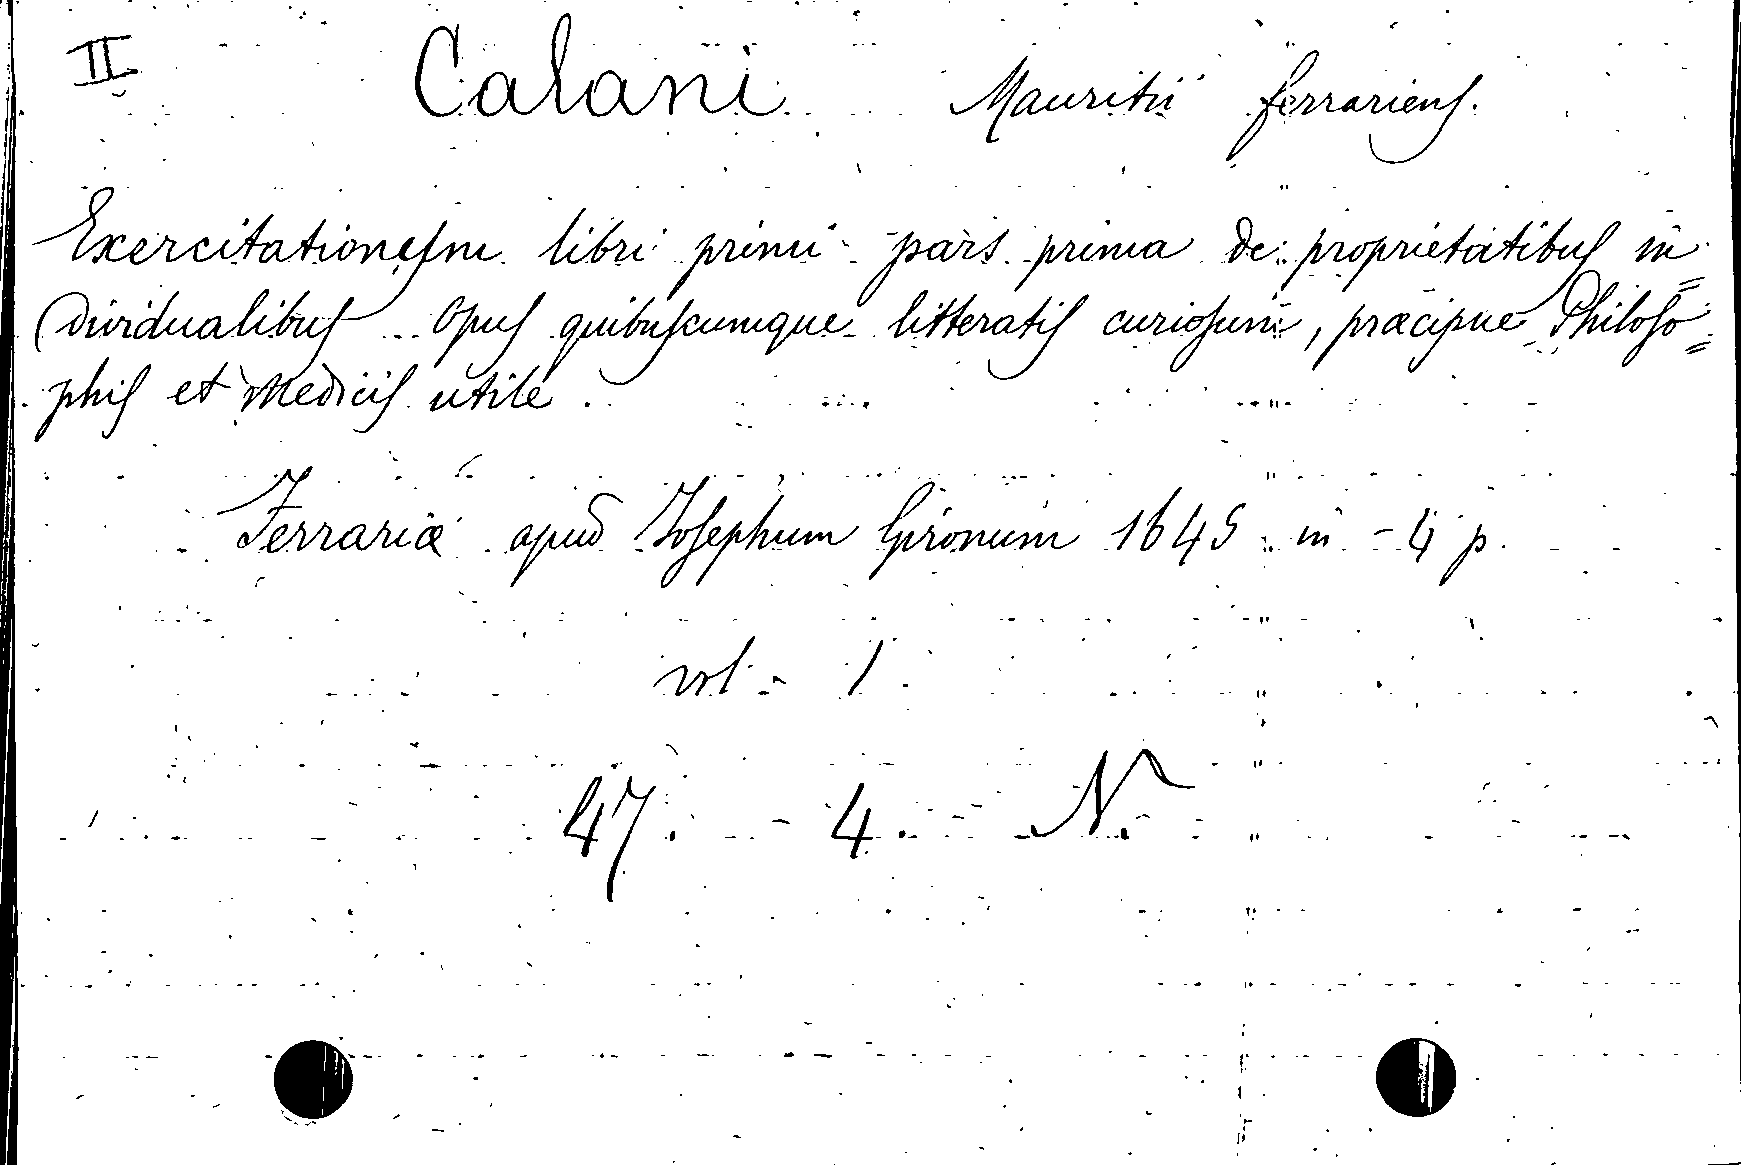 II Calani Mauritii ferrariens.
Exercitationesm libri primi pars prima de proprietatibus in=
dividualibus Opus quibuscumque litteratis curiosum, præcipue Philoso=
phis et Medicis utile.
Ferrariæ apud Josephum Gironum 1645 in-4 p.
vol - 1
47. - 4. N.